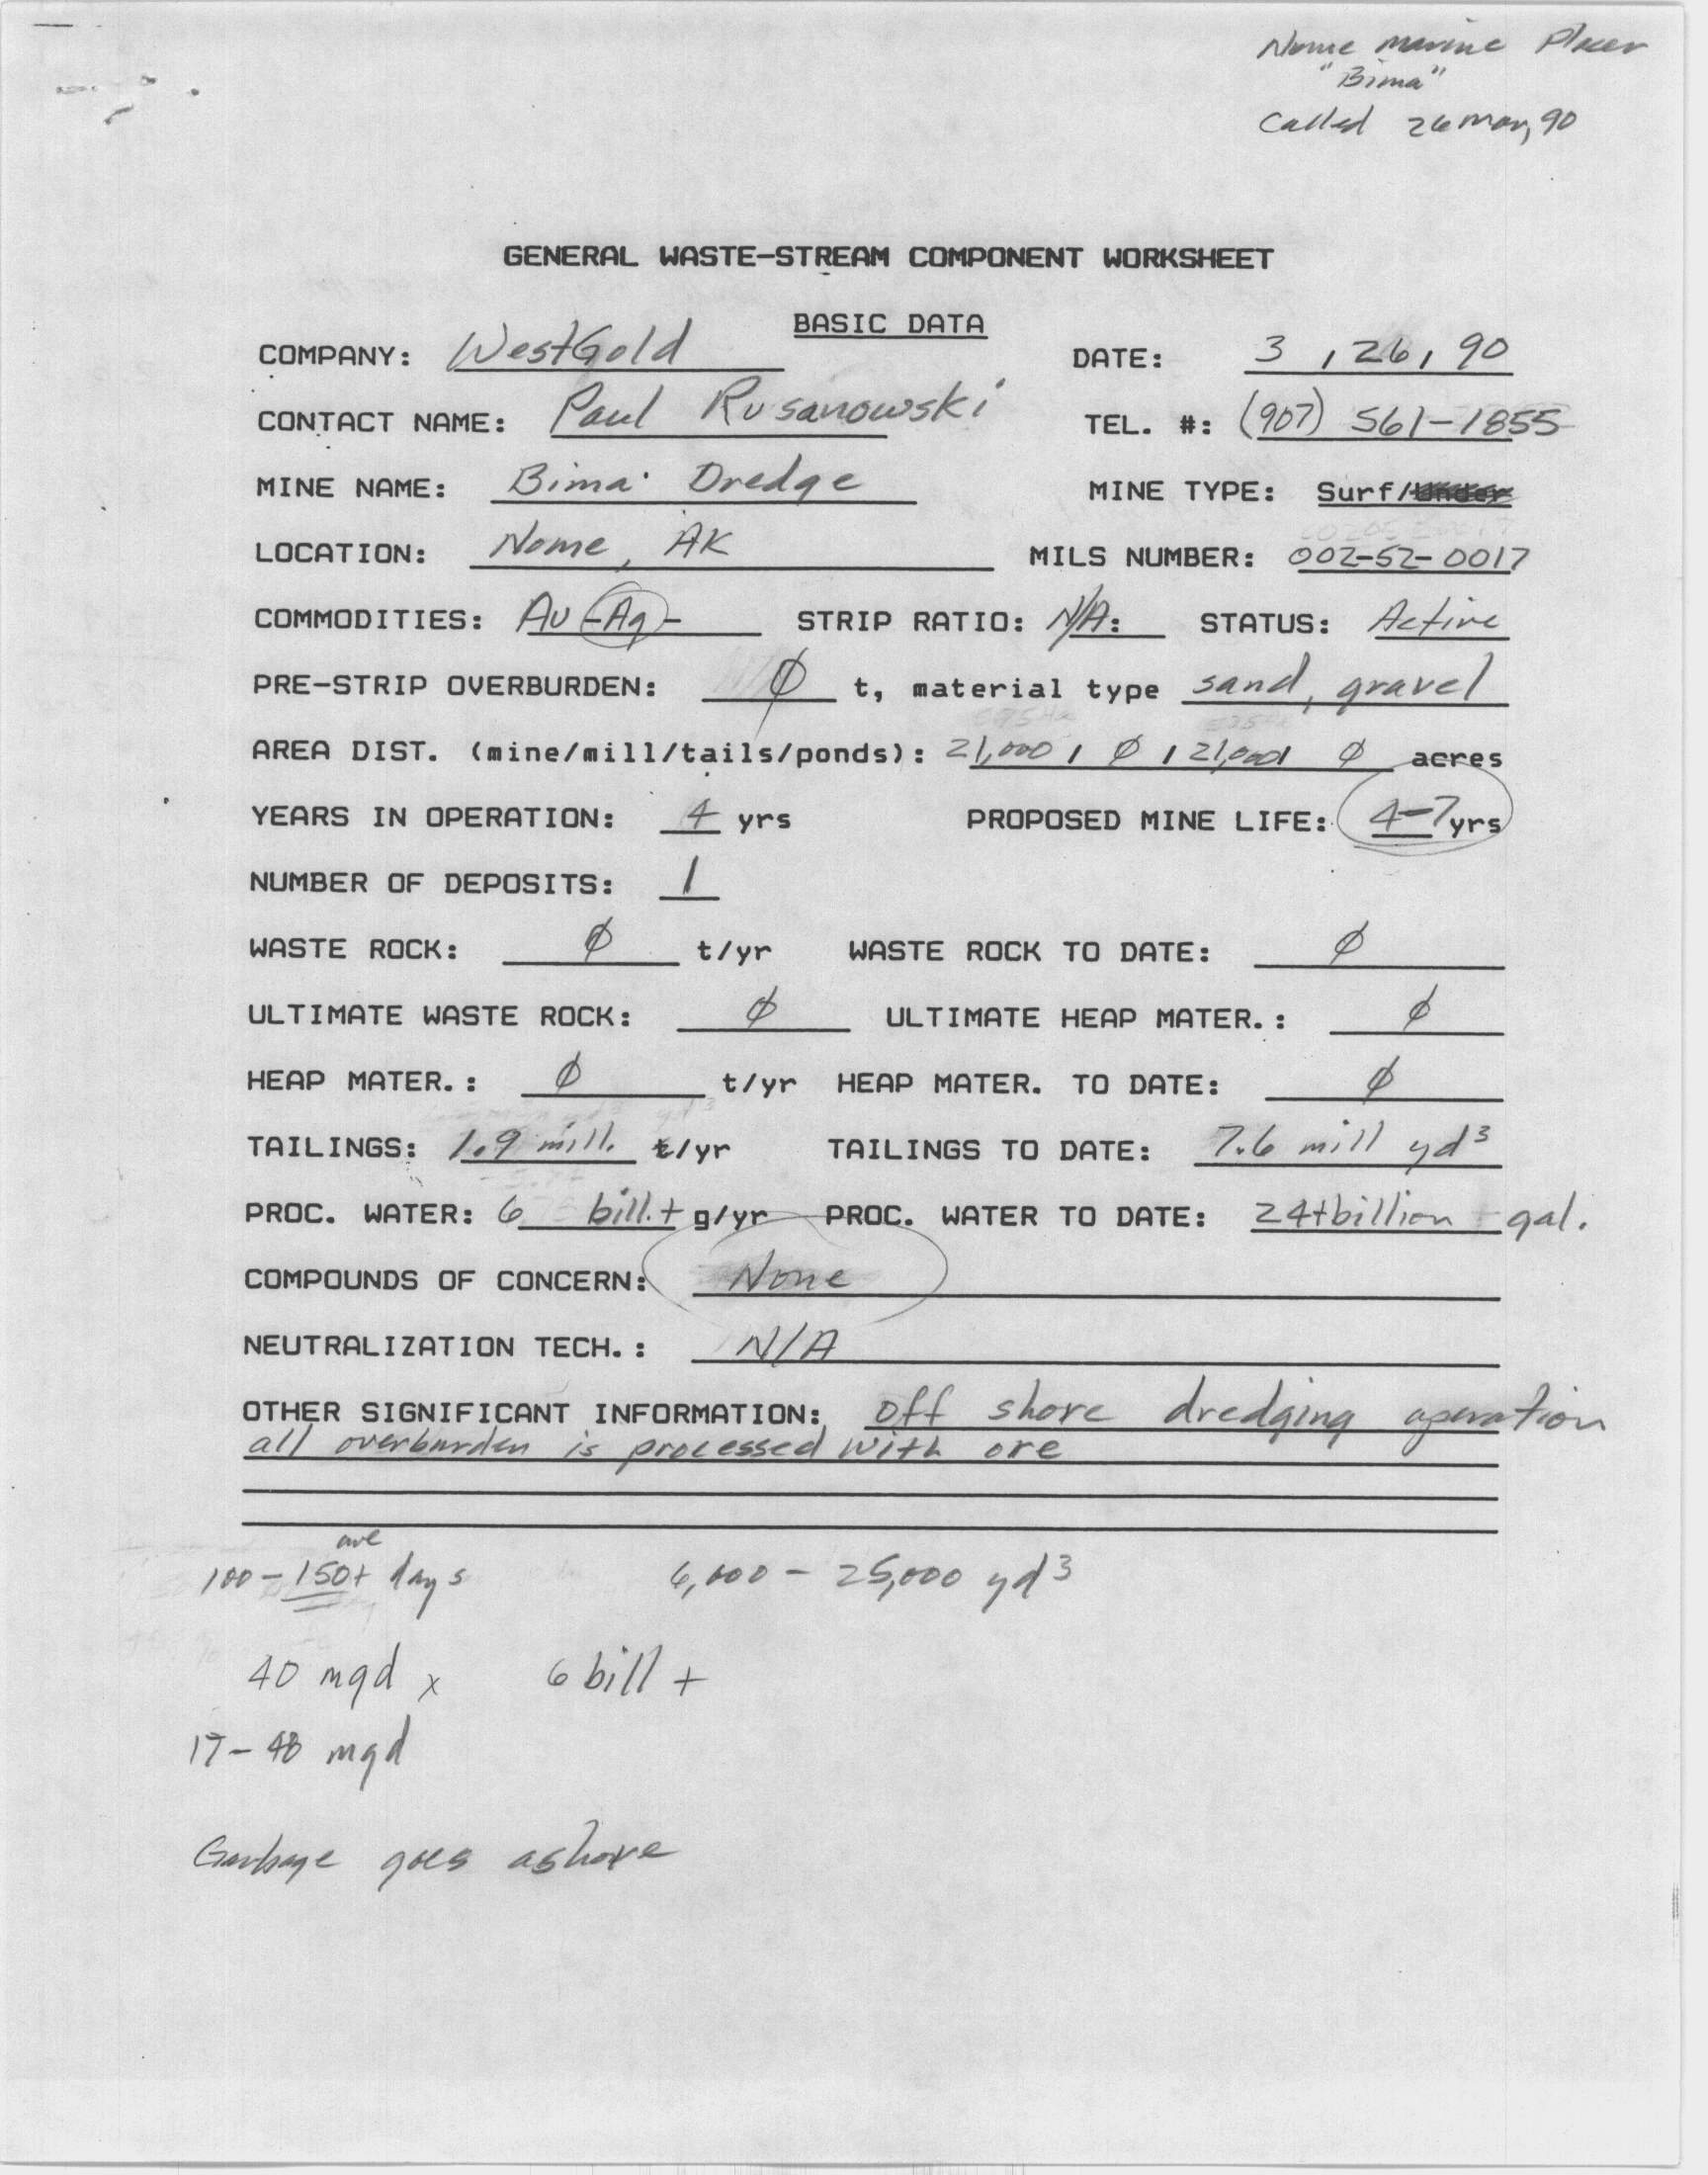 Nome marine Placer
"Bima"
Called 26 Mar, 90
GENERAL WASTE-STREAM COMPONENT WORKSHEET
BASIC DATA
COMPANY: WestGold DATE: 3 , 26 , 90
CONTACT NAME: Paul Rusanowski TEL. #: (907) 561-1855
MINE NAME: Bima Dredge MINE TYPE: Surf/Under
LOCATION: Nome, AK MILS NUMBER: 002-52-0017
COMMODITIES: Au -Ag- STRIP RATIO: N/A: STATUS: Active
PRE-STRIP OVERBURDEN: Ø t, material type sand, gravel
AREA DIST. (mine/mill/tails/ponds): 21,000 / Ø / 21,000 / Ø acres
YEARS IN OPERATION: 4 yrs PROPOSED MINE LIFE: 4-7 yrs
NUMBER OF DEPOSITS: 1
WASTE ROCK: Ø t/yr WASTE ROCK TO DATE: Ø
ULTIMATE WASTE ROCK: Ø ULTIMATE HEAP MATER.: Ø
HEAP MATER.: Ø t/yr HEAP MATER. TO DATE: Ø
TAILINGS: 1.9 mill. t/yr TAILINGS TO DATE: 7.6 mill yd³
PROC. WATER: 6 bill.+ g/yr PROC. WATER TO DATE: 24+billion gal.
COMPOUNDS OF CONCERN: None
NEUTRALIZATION TECH.: N/A
OTHER SIGNIFICANT INFORMATION: off shore dredging operation
all overburden is processed with ore
ave
100-150+ days 6,000 - 25,000 yd³
40 mgd x 6 bill +
17-48 mgd
Garbage goes ashore